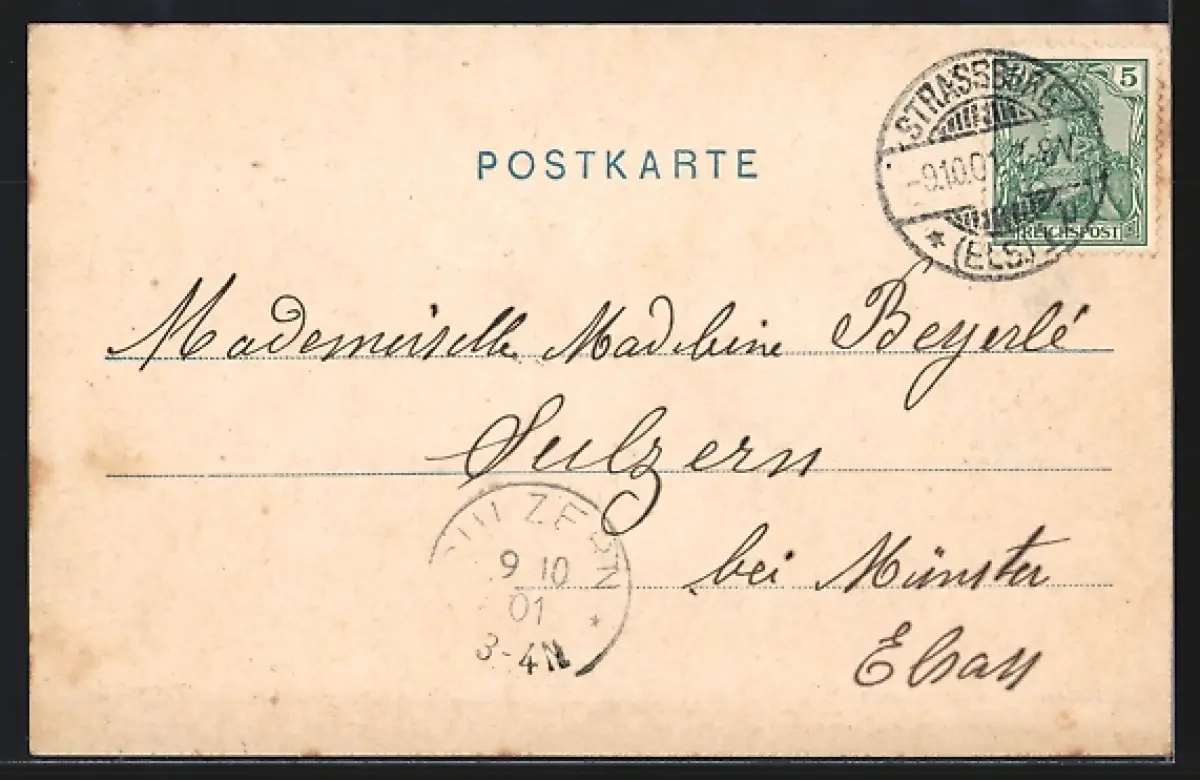 POSTKARTE
5
STRASSBURG
-9.10.01. 7-8V.
* (ELS.)
REICHSPOST
Mademoiselle Madeleine Beyerlé
Sulzern
SULZERN
9 10
01
3-4N *
bei Münster
Elsass